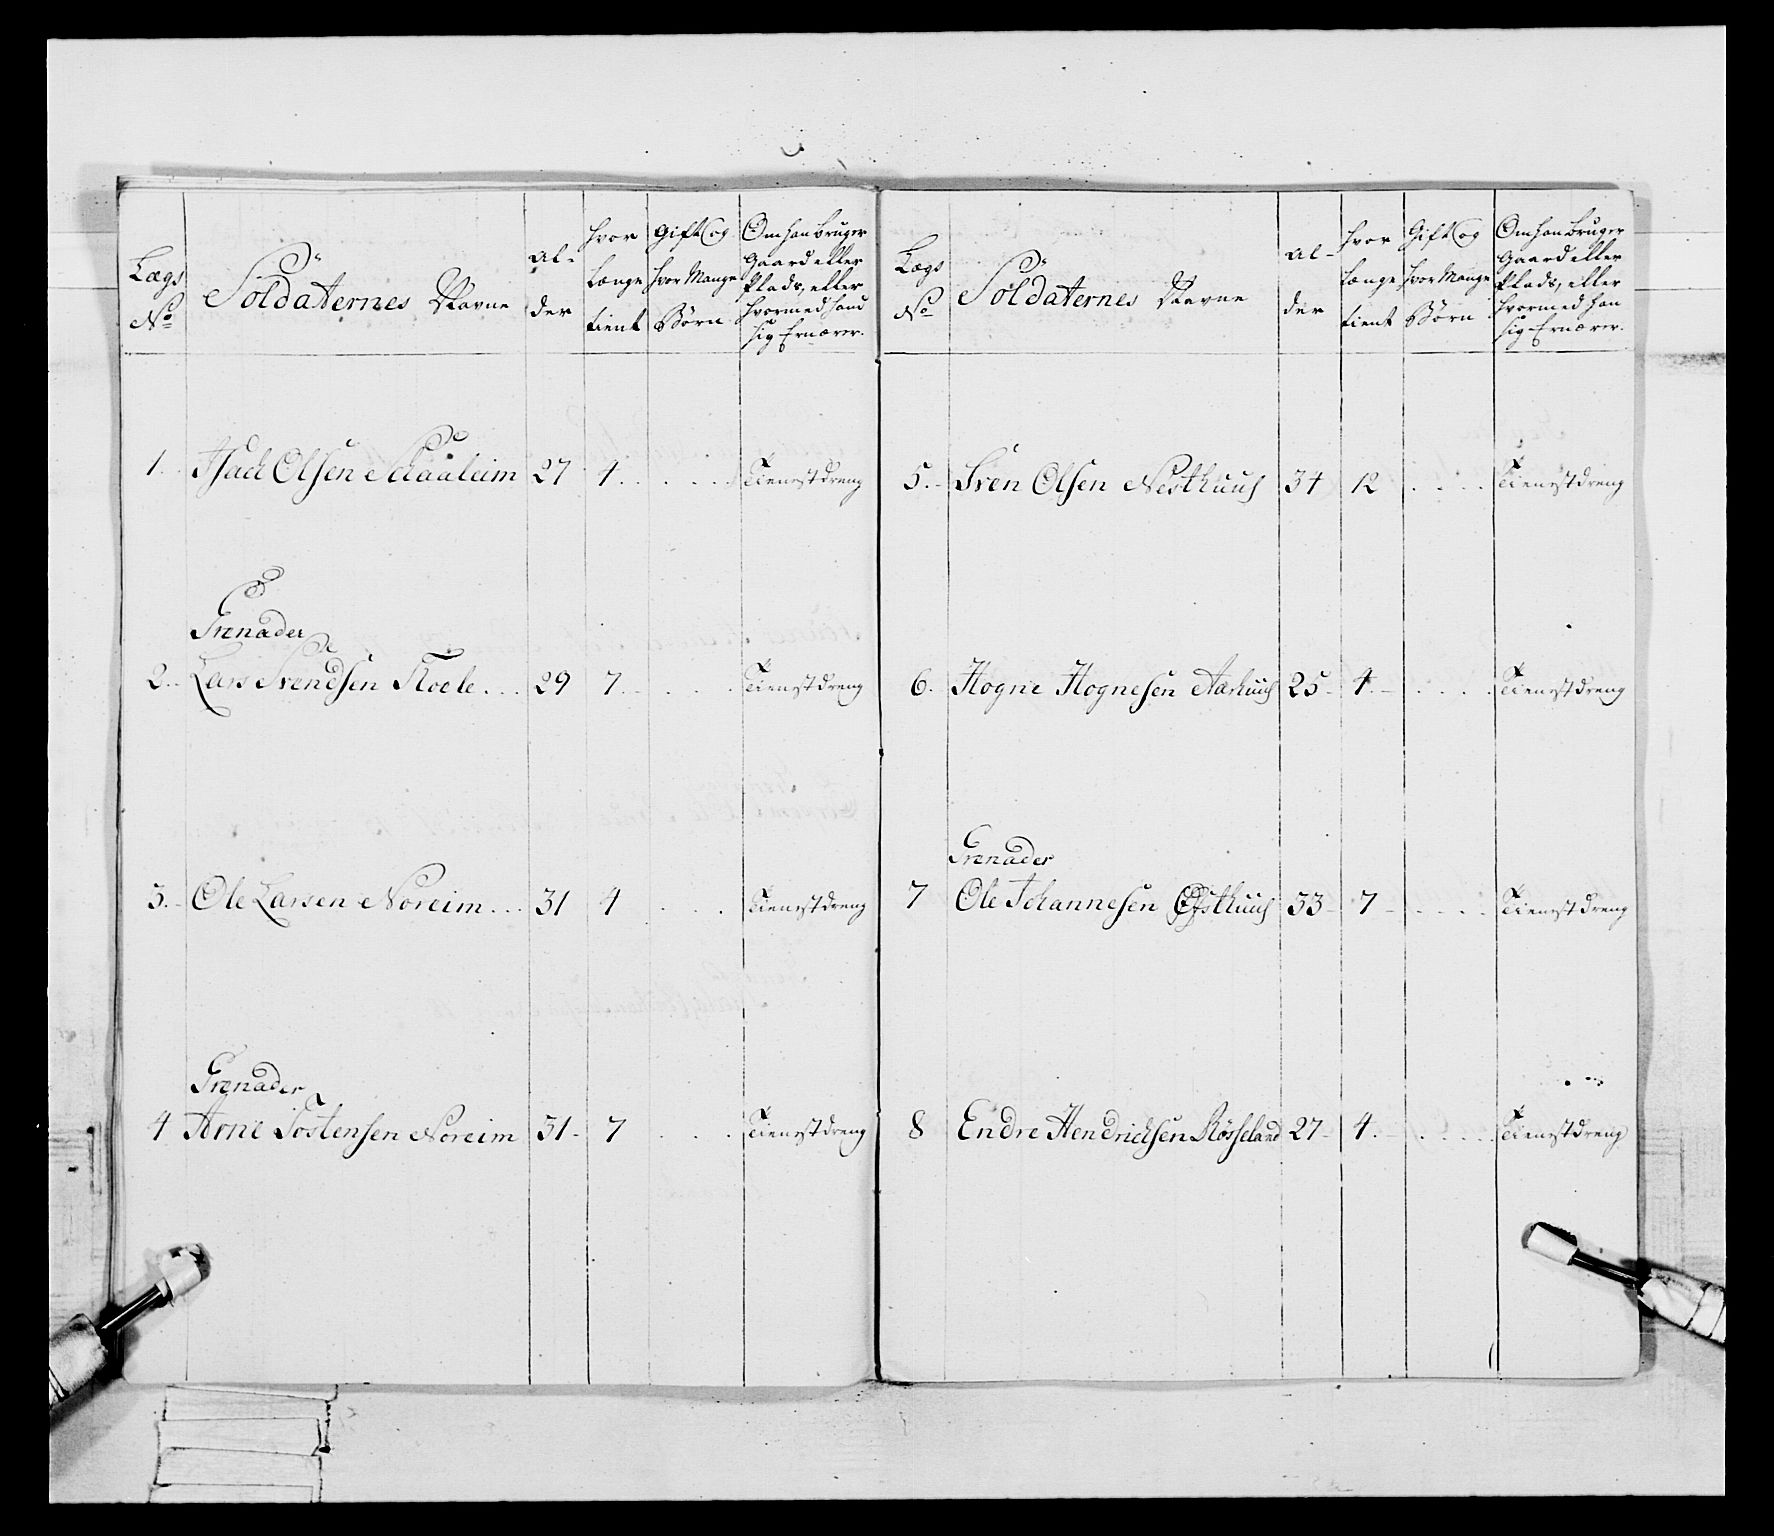 Lægs No | Soldaternes Navne | Al-der | hvor længe tient | Gift og hvor Mange Børn | Om han bruger Gaard eller Plads, eller hvormed hand sig Ernærer.
1. Isach Olsen Maaleim 27 4. . . . . Tienestdreng
Grenader
2. Lars Svendsen Koele . . . 29 7. . . . . Tienestdreng
3. Ole Larsen Noreim . . . 31 4 . . . Tienestdreng
Grenader
4 Arne Tostensen Noreim 31- 7 . . . Tienestdreng
Lægs No | Soldaternes Navne | Al-der | hvor længe tient | Gift og hvor Mange Børn | Om han bruger Gaard eller Plads, eller hvormed han sig Ernærer.
5. Sven Olsen Nesthuus 34 12 . . . . Tienestdreng
6. Hogne Hognesen Aarhuus 25- 4.- . . . . Tienestdreng
Grenader
7 Ole Johannesen Østhuus 33- 7- . . . . Tienestdreng
8 Endre Hendrichsen Røsseland 27- 4.- . . . . Tienestdreng